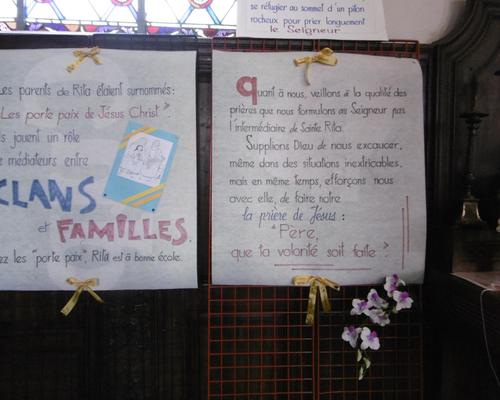 se réfugier au sommet d'un piton
rocheux pour prier longuement
le Seigneur
es parents de Rita étaient surnommés:
Les porte paix de Jésus Christ"
s jouent un rôle
e médiateurs entre
CLANS
et FAMILLES.
ez les "porte paix" Rita est à bonne école.
Quant à nous, veillons à la qualité des
prières que nous formulons au Seigneur par
l'intermédiaire de Sainte Rita.
Supplions Dieu de nous exaucer,
même dans des situations inextricables,
mais en même temps, efforçons nous
avec elle, de faire notre
la prière de Jésus :
"Père,
que ta volonté soit faite".